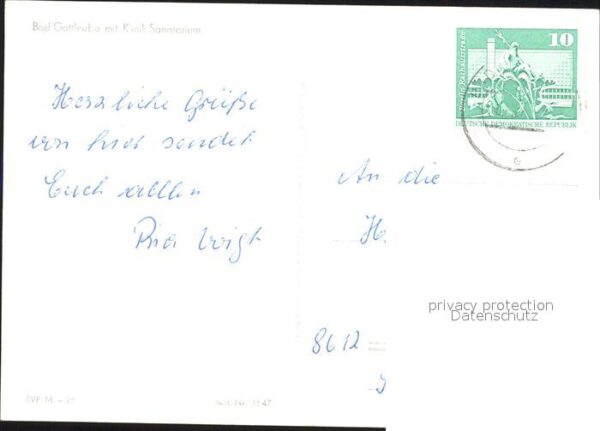 Bad Gottleuba mit Klinik-Sanatorium
10
DEUTSCHE DEMOKRATISCHE REPUBLIK
Herzliche Grüße
von hier sendet
Euch allen
Voigt
An die
H
privacy protection
Datenschutz
8612
EVP M
Best.-Nr.